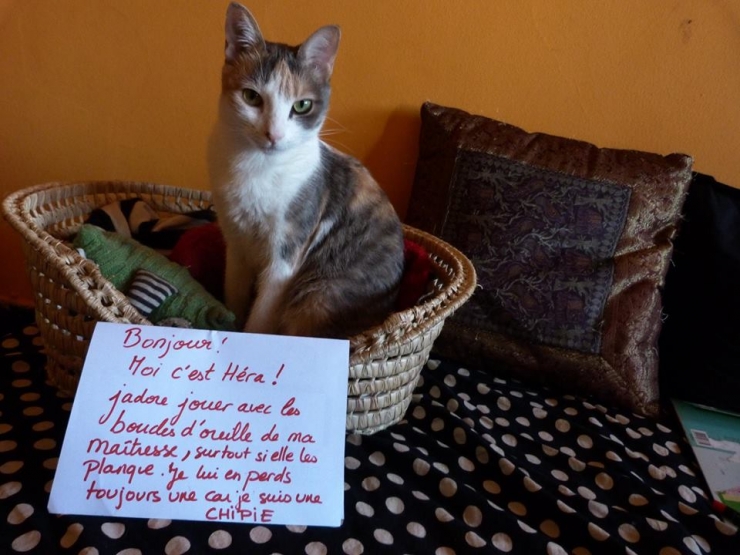 Bonjour!
Moi c'est Héra !
j'adore jouer avec les
boucles d'oreille de ma
maîtresse, surtout si elle les
planque. Je lui en perds
toujours une car je suis une
CHiPiE